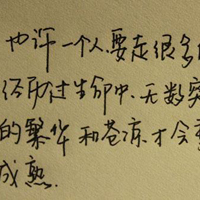 也许一个人,要走很多
经历过生命中无数突
的繁华和苍凉才会变
成熟.